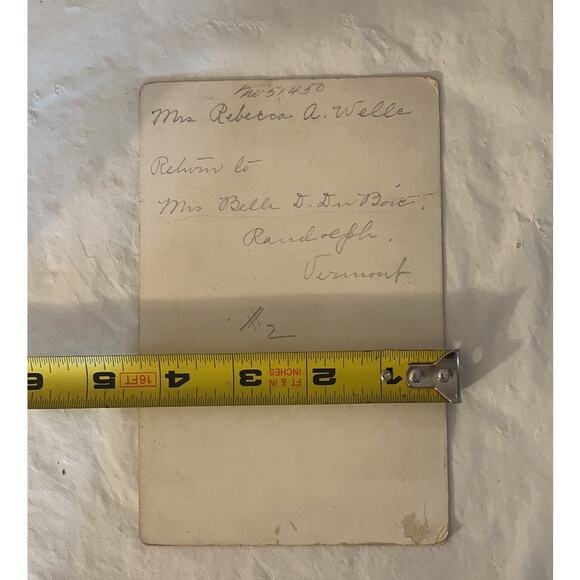 No 51450
Mrs Rebecca A. Wells
Return to
Mrs Belle D. Du Bois.
Randolph.
Vermont
2
6 5 16FT 4 3 FT & IN INCHES 2 1